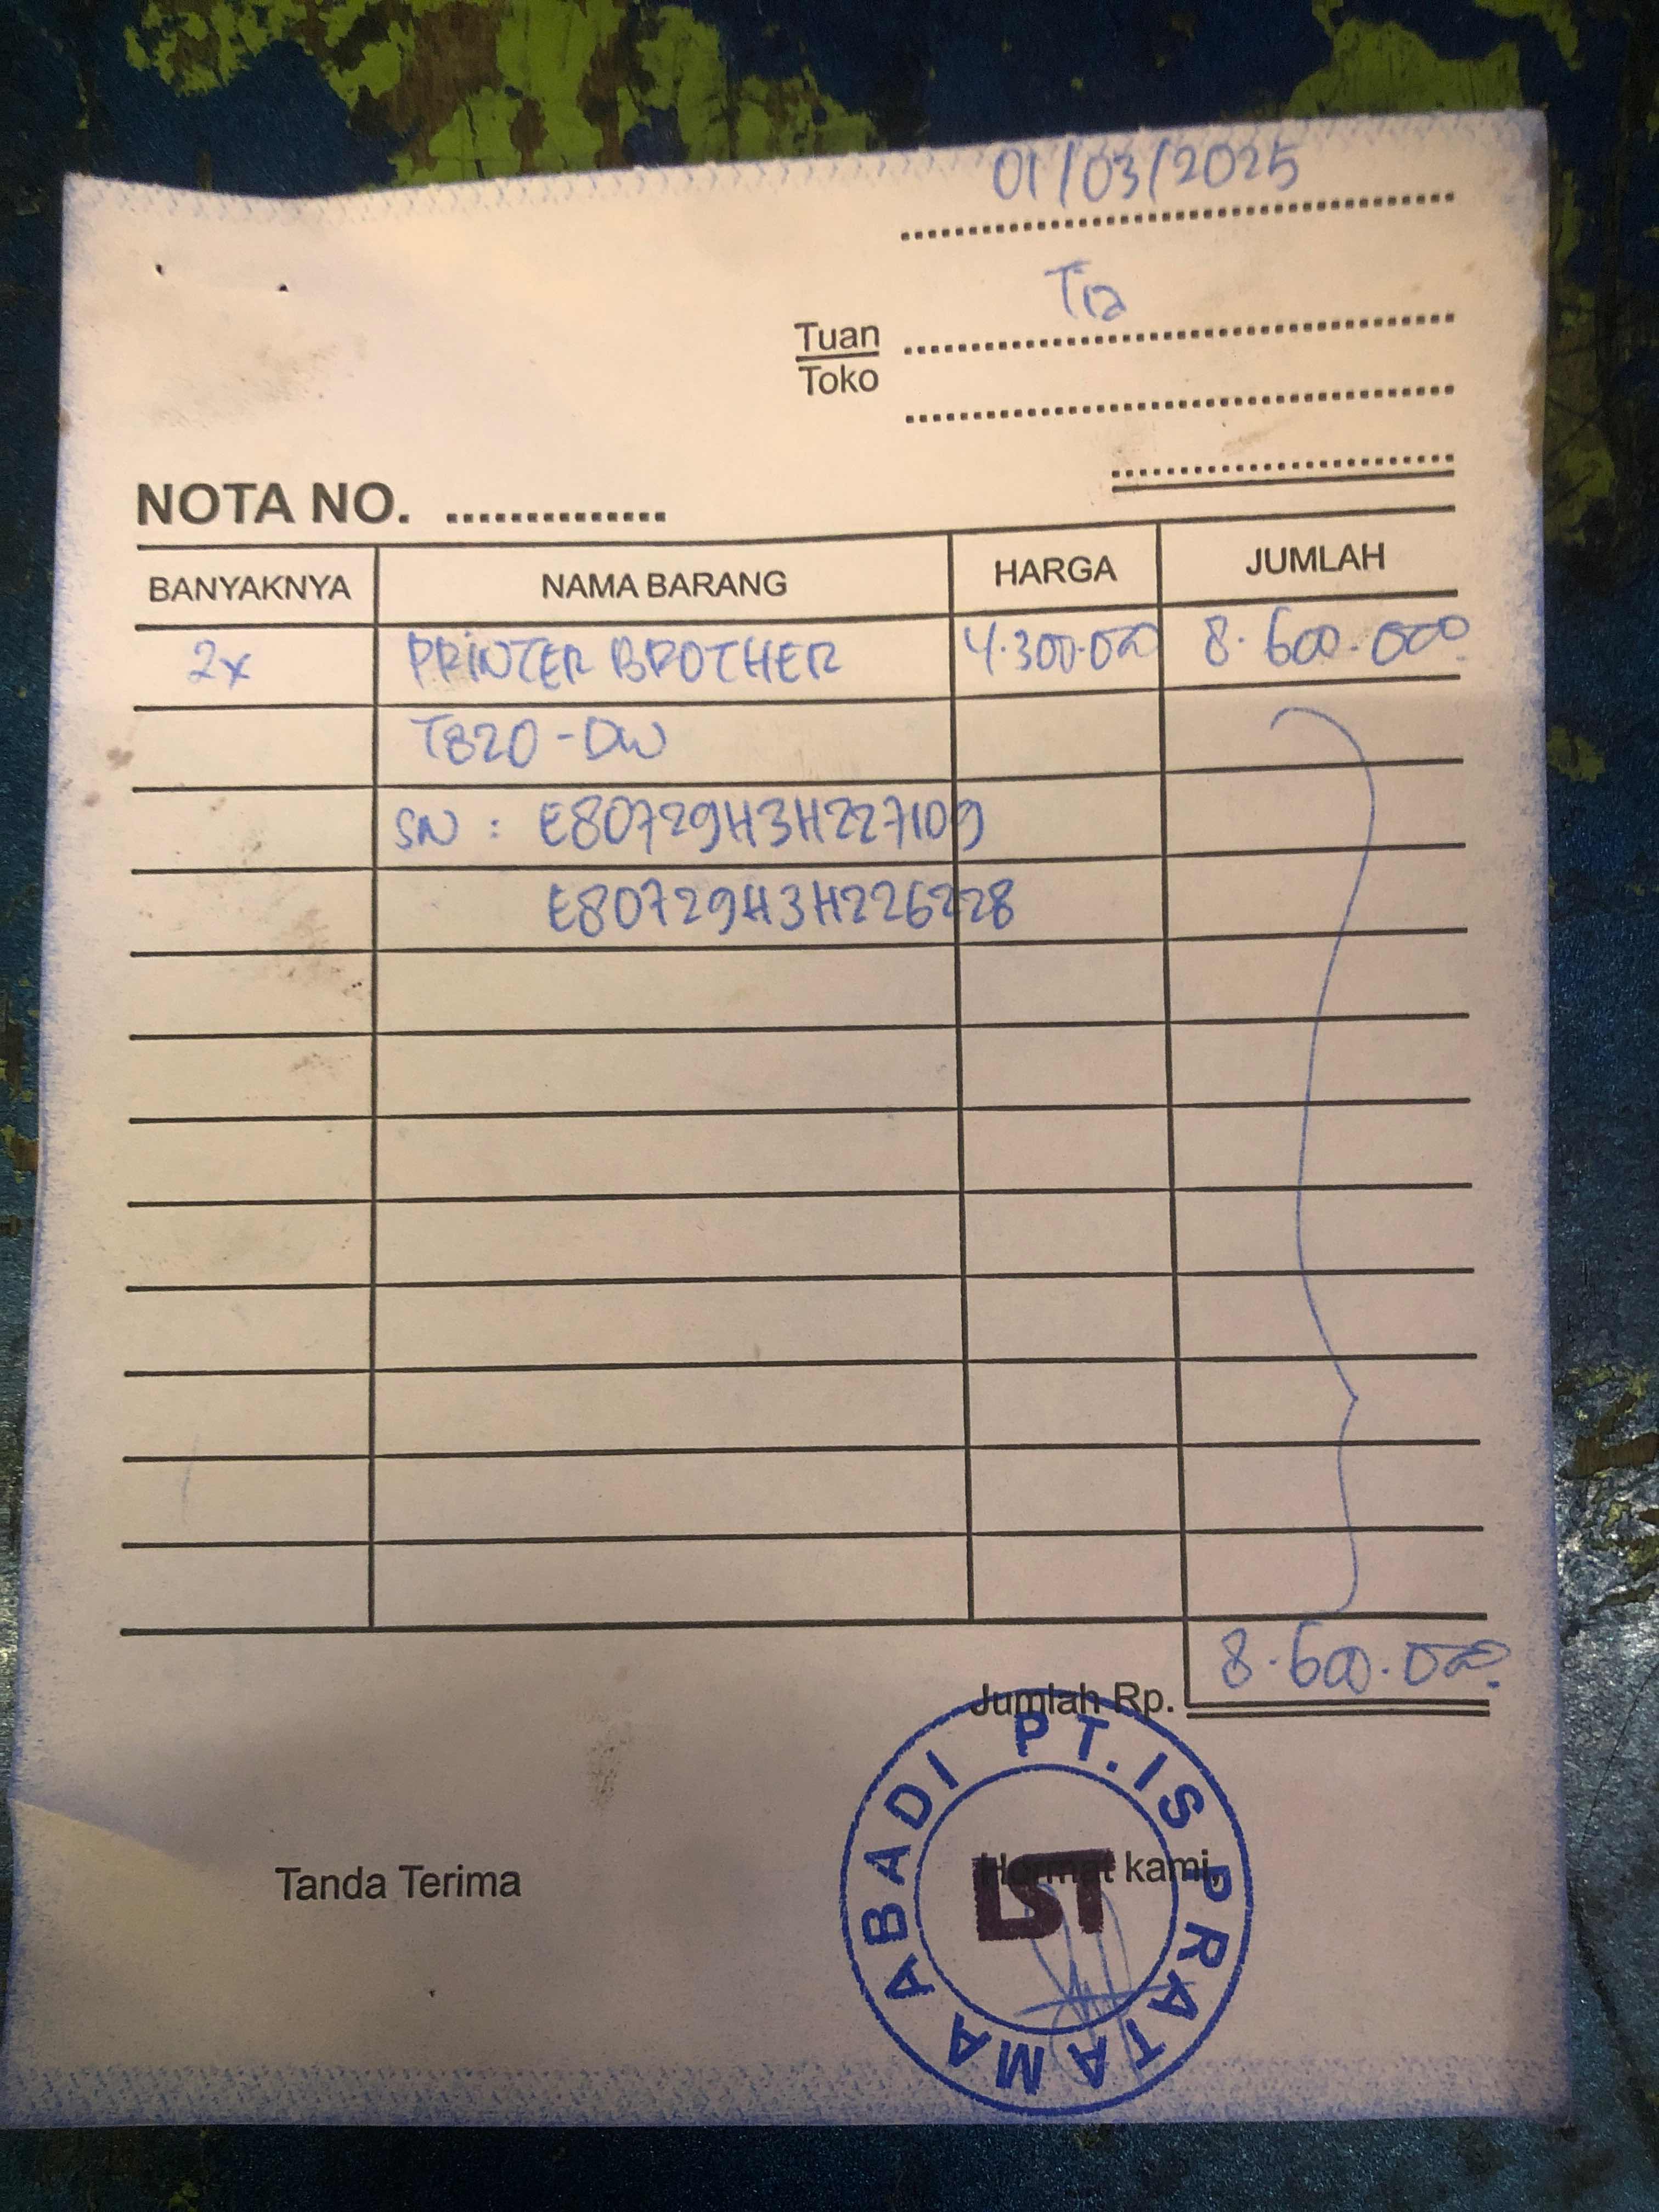 01/03/2025
Tia
Tuan
Toko
NOTA NO.
BANYAKNYA NAMA BARANG HARGA JUMLAH
2x PRINTER BROTHER 4.300.000 8.600.000
T820-DW
SN : E80729H3H227109
E80729H3H226228
Jumlah Rp. 8.600.000
Tanda Terima Hormat kami,
PT. IS PRATAMA ABADI
IST